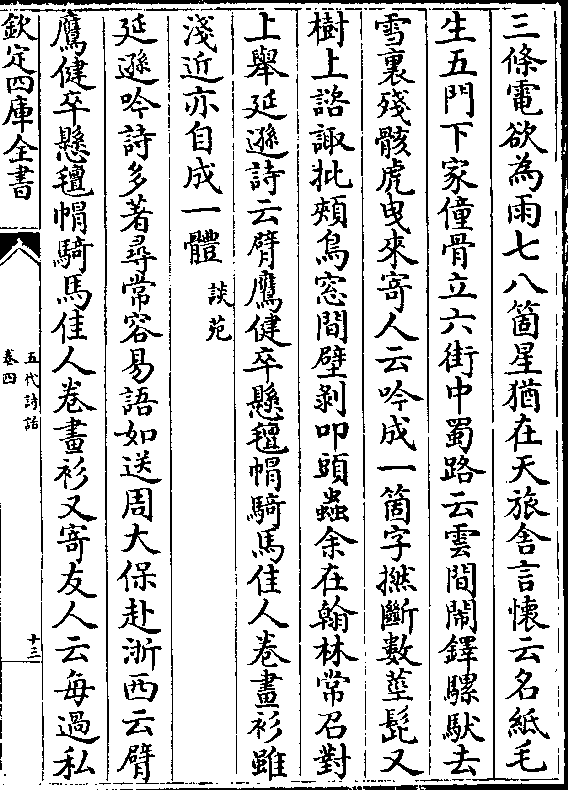 三條電欲為雨七八箇星猶在天旅舍言懷云名紙毛
生五門下家僮骨立六街中蜀路云雲間鬧鐸騾馱去
雪裏殘骸虎曳來寄人云吟成一箇字撚斷數莖髭又
樹上諮諏批頰鳥窓間壁剝叩頭蟲余在翰林常召對
上舉延遜詩云臂鷹健卒懸氊帽騎馬佳人卷畫衫雖
淺近亦自成一體談苑
延遜吟詩多著尋常容易語如送周大保赴浙西云臂
鷹健卒懸氊帽騎馬佳人卷畫衫又寄友人云每過私
欽定四庫全書
五代詩話
卷四
十三